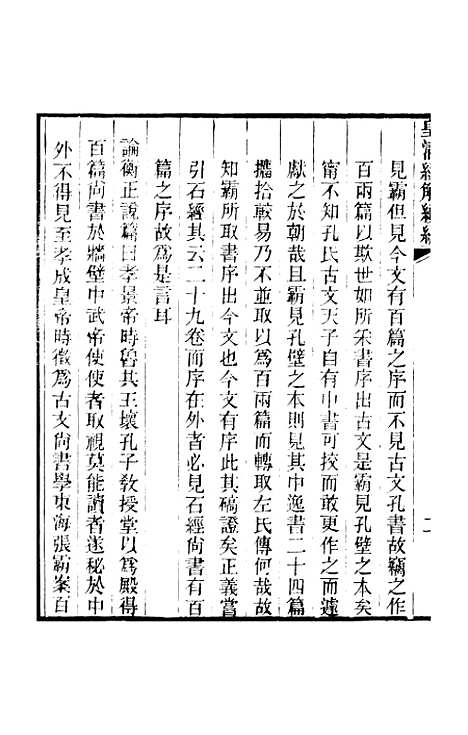 皇清經解續編
二
見霸但見今文有百篇之序而不見古文孔書故竊之作
百兩篇以欺世如所采書序出古文是霸見孔壁之本矣
甯不知孔氏古文天子自有中書可挍而敢更作之而遽
獻之於朝哉且霸見孔壁之本則見其中逸書二十四篇
攟拾較易乃不並取以爲百兩篇而轉取左氏傳何哉故
知霸所取書序出今文也今文有序此其碻證矣正義嘗
引石經其云二十九卷而序在外者必見石經尙書有百
篇之序故爲是言耳
論衡正說篇曰孝景帝時魯共王壞孔子敎授堂以爲殿得
百篇尙書於牆壁中武帝使使者取視莫能讀者遂秘於中
外不得見至孝成皇帝時徵爲古文尙書學東海張霸案百